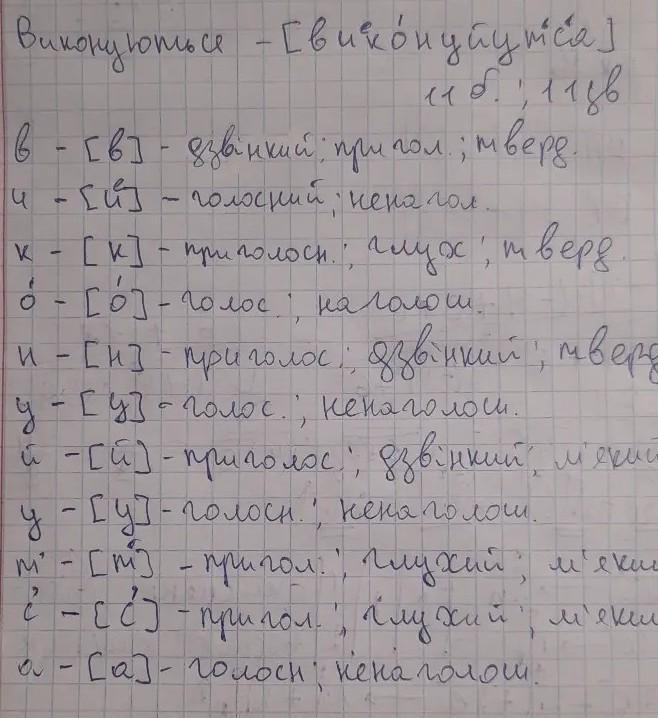 Виконуються - [виеко́нуйут'с'а]
11 б.; 11 зв
в - [в] - дзвінкий; пригол.; тверд.
и - [ие] - голосний; ненагол.
к - [к] - приголосн.; глух; тверд.
о́ - [о́] - голос.; наголош.
н - [н] - приголос.; дзвінкий; тверд
у - [у] - голос.; ненаголош.
й - [й] - приголос.; дзвінкий; м'який
у - [у] - голосн.; ненаголош.
т' - [т'] - пригол.; глухий; м'яки
с' - [с'] - пригол.; глухий; м'яки
а - [а] - голосн; ненаголош.